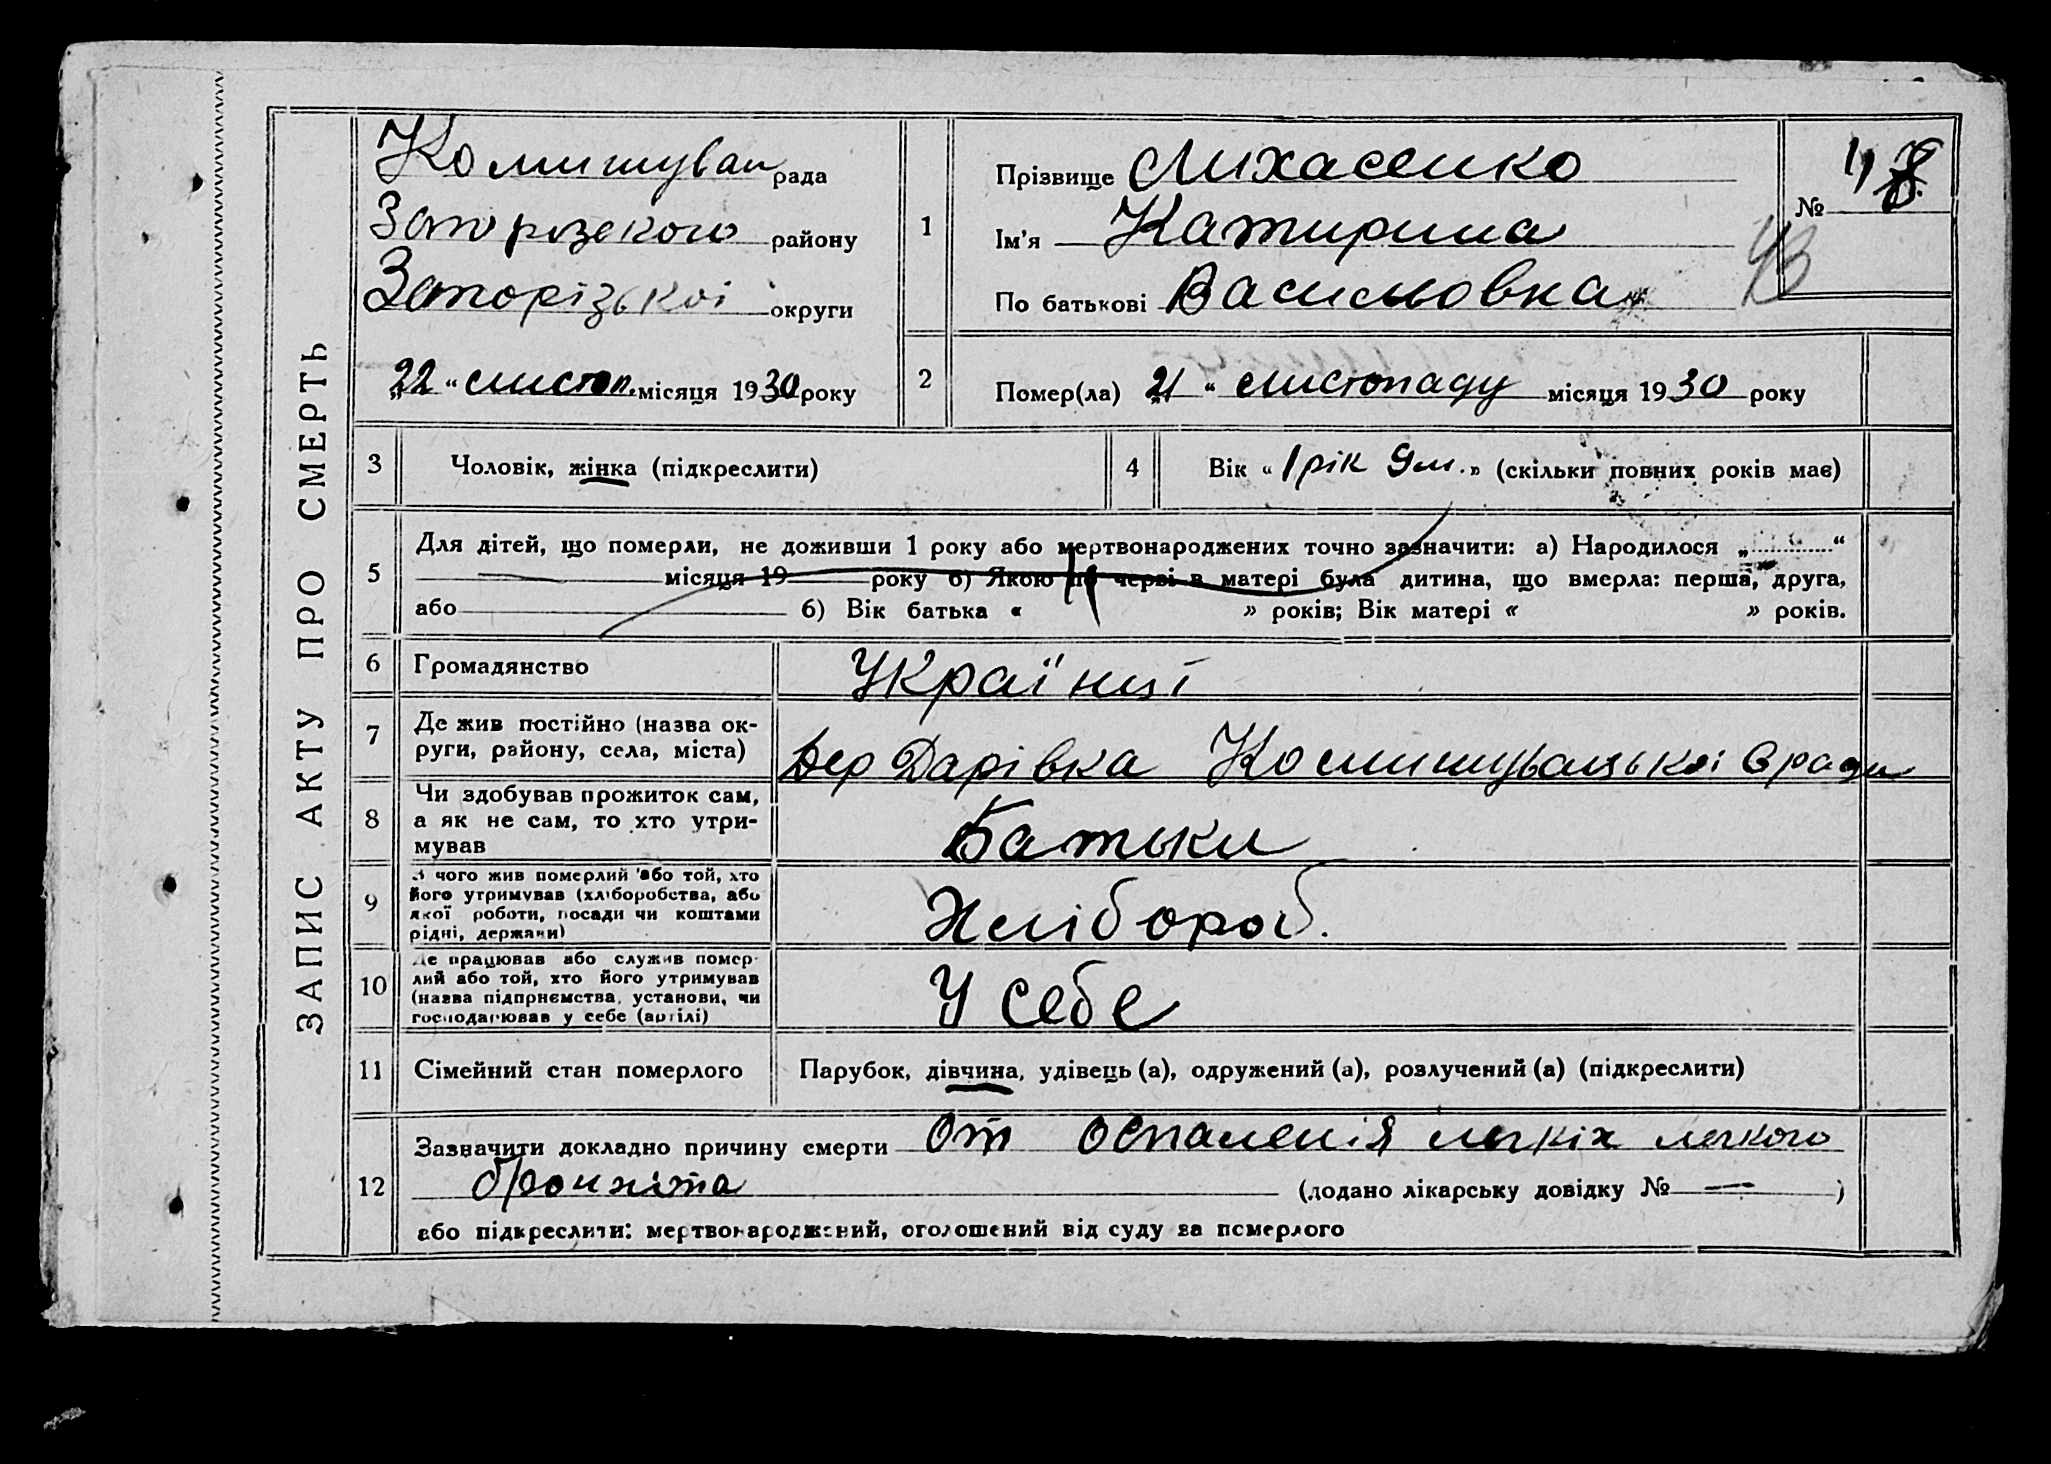 ЗАПИС АКТУ ПРО СМЕРТЬ
Комишуван рада
Запорізского району
Запорізької округи
„22“ листоп. місяця 1930 року
1
Прізвище Лихасенко
Ім'я Катирина
По батькові Василовна
№
43
2
Помер(ла) „21“ листопаду місяця 1930 року
3
Чоловік, жінка (підкреслити)
4
Вік «1 рік 9 м.» (скільки повних років має)
5
Для дітей, що померли, не доживши 1 року або мертвонароджених точно зазначити: а) Народилося „ “
місяця 19 року б) Якою по черзі в матері була дитина, що вмерла: перша, друга,
або 6) Вік батька « » років; Вік матері « » років.
6
Громадянство
Українці
7
Де жив постійно (назва ок-
руги, району, села, міста)
Дер Дарівка Комишуваської с ради
8
Чи здобував прожиток сам,
а як не сам, то хто утри-
мував
Батьки
9
З чого жив померлий або той, хто
його утримував (хліборобства, або
якої роботи, посади чи коштами
рідні, держави)
Хлібороб.
10
Де працював або служив помер-
лий або той, хто його утримував
(назва підприємства, установи, чи
господарював у себе (артілі)
У себе
11
Сімейний стан померлого
Парубок, дівчина, удівець (а), одружений (а), розлучений (а) (підкреслити)
12
Зазначити докладно причину смерти От оспаленія легкіх легкого
бронхіта (додано лікарську довідку № — )
або підкреслити: мертвонароджений, оголошений від суду за померлого